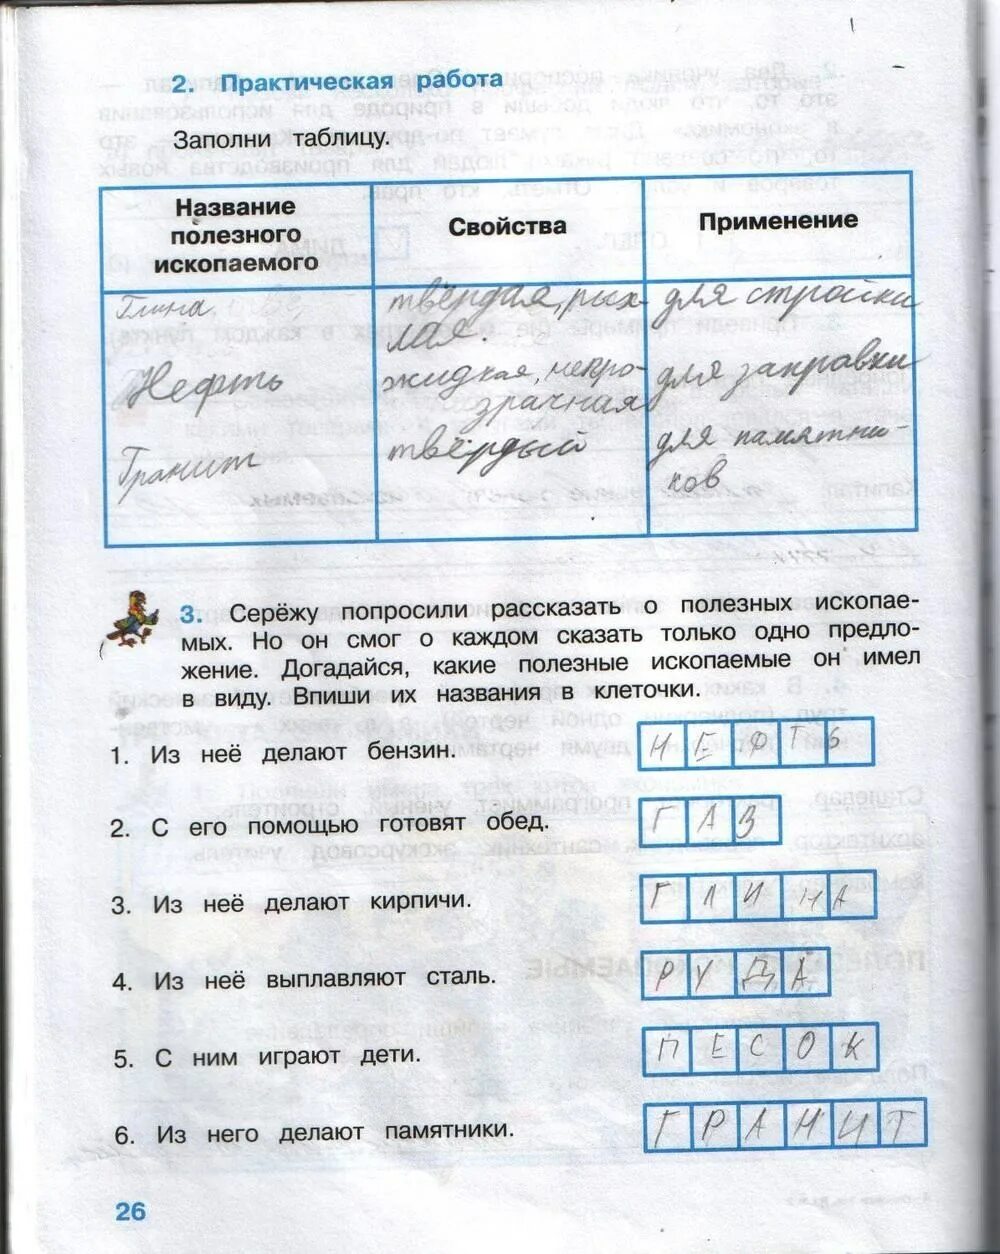 2. Практическая работа
Заполни таблицу.
Название полезного ископаемого
Свойства
Применение
Глина
твёрдая, рых-
лая.
для стройки
Нефть
жидкая, непро-
зрачная
для заправки
Гранит
твёрдый
для памятни-
ков
3. Серёжу попросили рассказать о полезных ископае-
мых. Но он смог о каждом сказать только одно предло-
жение. Догадайся, какие полезные ископаемые он имел
в виду. Впиши их названия в клеточки.
1. Из неё делают бензин. НЕФТЬ
2. С его помощью готовят обед. ГАЗ
3. Из неё делают кирпичи. ГЛИНА
4. Из неё выплавляют сталь. РУДА
5. С ним играют дети. ПЕСОК
6. Из него делают памятники. ГРАНИТ
26